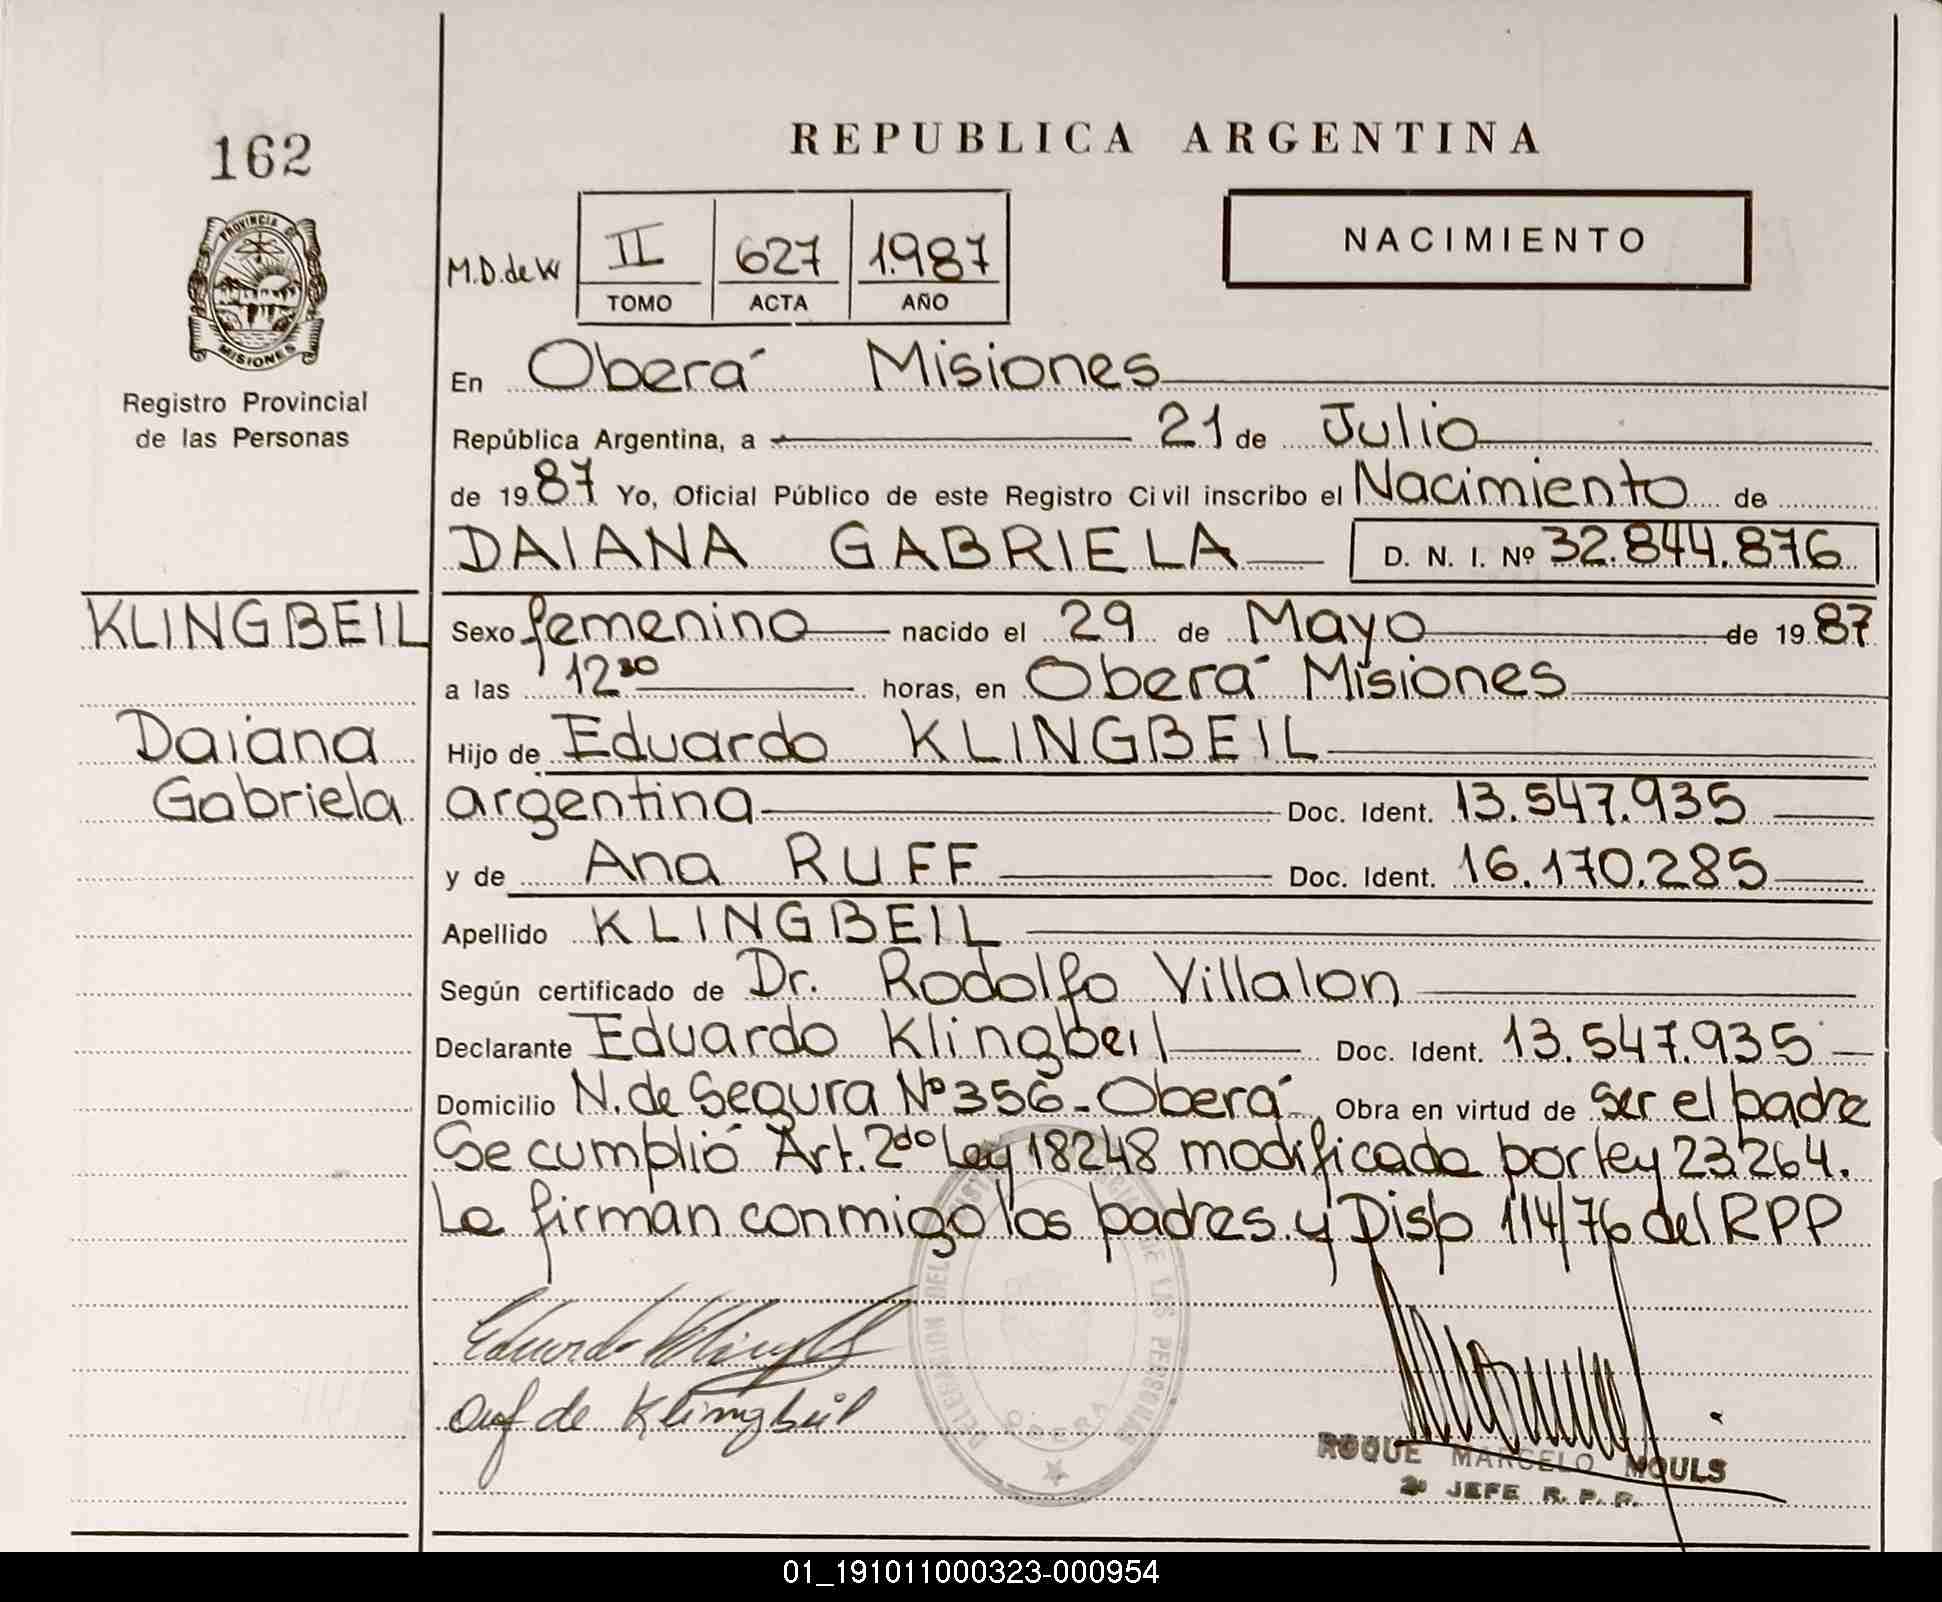 REPUBLICA ARGENTINA
162
PROVINCIA DE
MISIONES
Registro Provincial
de las Personas
M.D.de W
II 627 1.987
TOMO ACTA AÑO
NACIMIENTO
En Oberá Misiones
República Argentina, a 21 de Julio
de 1987 Yo, Oficial Público de este Registro Civil inscribo el Nacimiento de
DAIANA GABRIELA D. N. I. Nº 32.844.876
KLINGBEIL
Daiana
Gabriela
Sexo femenino nacido el 29 de Mayo de 1987
a las 12³⁰ horas, en Oberá Misiones
Hijo de Eduardo KLINGBEIL
argentina Doc. Ident. 13.547.935
y de Ana RUFF Doc. Ident. 16.170.285
Apellido KLINGBEIL
Según certificado de Dr. Rodolfo Villalon
Declarante Eduardo Klingbeil Doc. Ident. 13.547.935
Domicilio N. de Segura Nº 356 - Oberá Obra en virtud de ser el padre
Se cumplió Art. 2do Ley 18248 modificada por ley 23264.
Le firman conmigo los padres. y Disp 114/76 del RPP
Eduardo Klingbeil
de Klingbeil
DELEGACION DEL DE LAS PERSONAS
OBERA
ROQUE MARCELO MOULS
2º JEFE R. P. P.
01_191011000323-000954